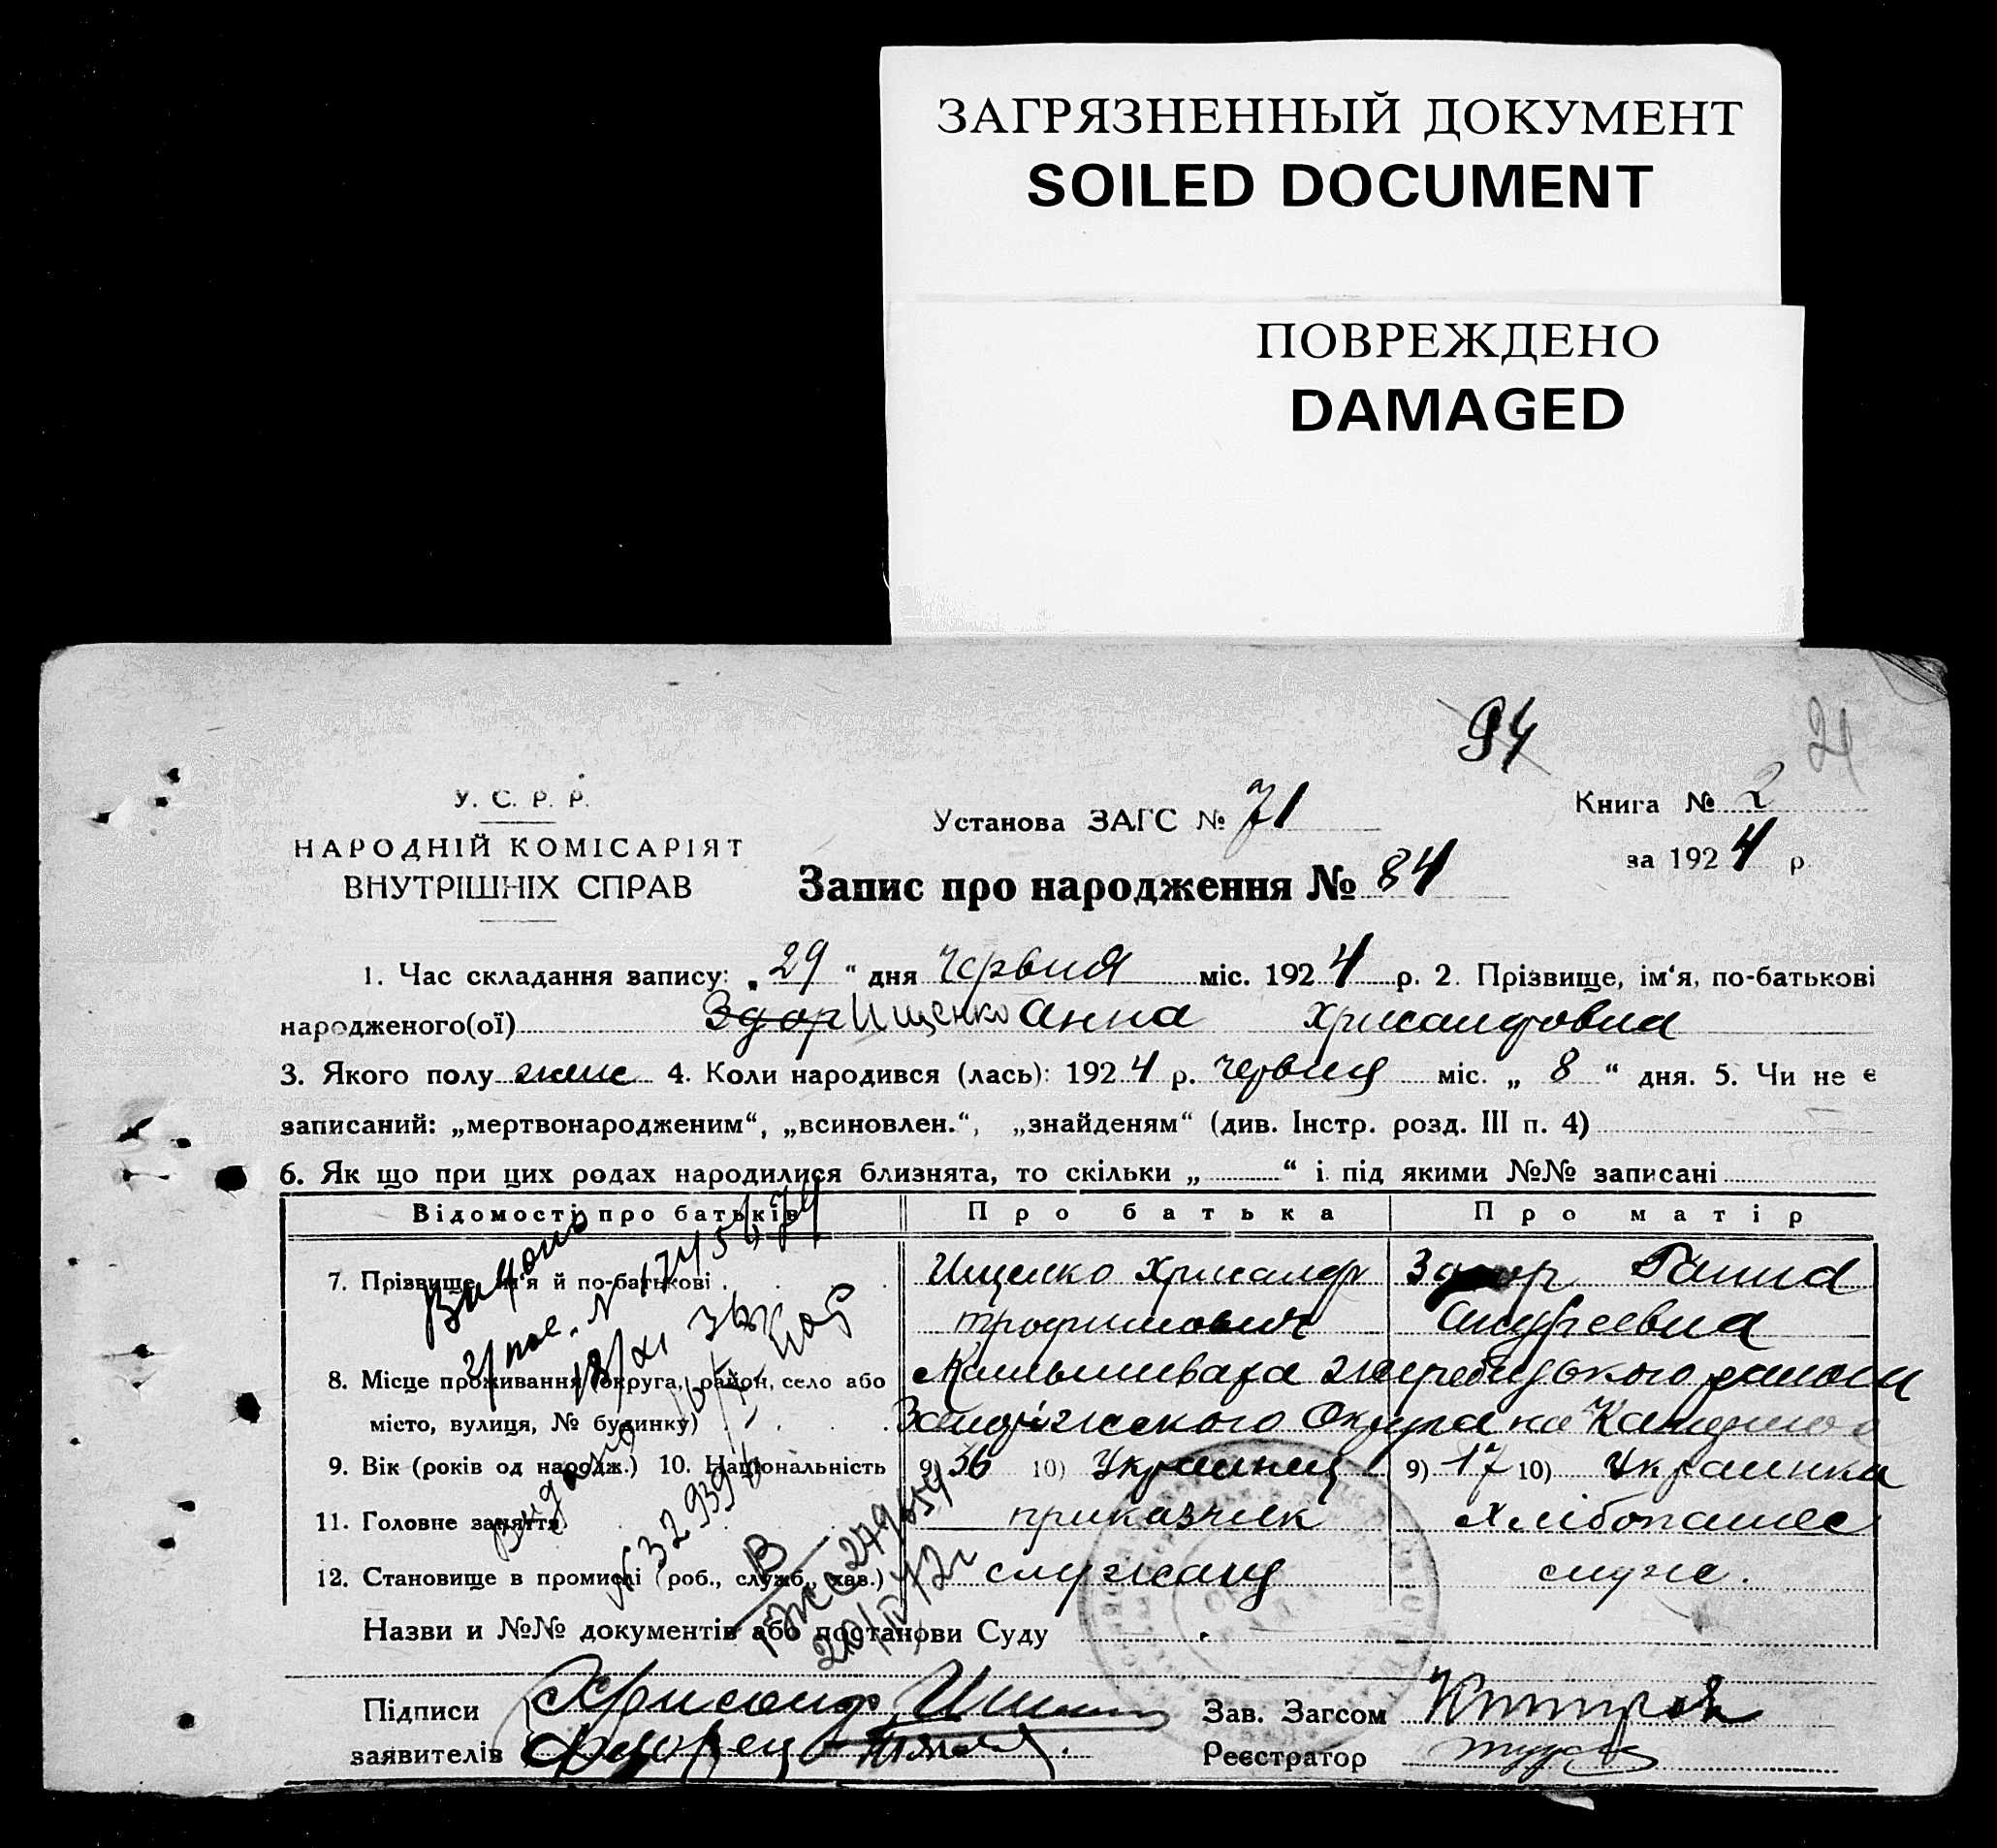 ЗАГРЯЗНЕННЫЙ ДОКУМЕНТ
SOILED DOCUMENT
ПОВРЕЖДЕНО
DAMAGED
94
У. С. Р. Р.
НАРОДНІЙ КОМІСАРІЯТ
ВНУТРІШНІХ СПРАВ
Установа ЗАГС № 71
Книга № 2
за 1924 р
Запис про народження № 84
1. Час складання запису: „29“ дня Червня міс. 1924 р. 2. Прізвище, ім'я, по-батькові
народженого(ої) Здор Ищенко Анна Хрисанфовна
3. Якого полу жінс 4. Коли народився (лась): 1924 р. червня міс. „8“ дня. 5. Чи не є
записаний: „мертвонародженим“, „всиновлен.“, „знайденям“ (див. Інстр. розд. III п. 4)
6. Як що при цих родах народилися близнята, то скільки „ “ і під якими №№ записані
Відомості про батьків Про батька Про матір
7. Прізвище, ім'я й по-батькові Ищенко Хрисанф Здор Ганна
Трофимович Андреевна
8. Місце проживання (округа, район, село або
місто, вулиця, № будинку) Запоріжского Округа на
9. Вік (років од народж.) 10. Національність 9) 36 10) Украинец 9) 17 10) Украинка
11. Головне заняття приказчик Хлібопашес
12. Становище в промислі (роб., служб., хаз.) служащ служ.
Назви и №№ документів або постанови Суду
Підписи Хрисанф
заявителів
Зав. Загсом
Реєстратор